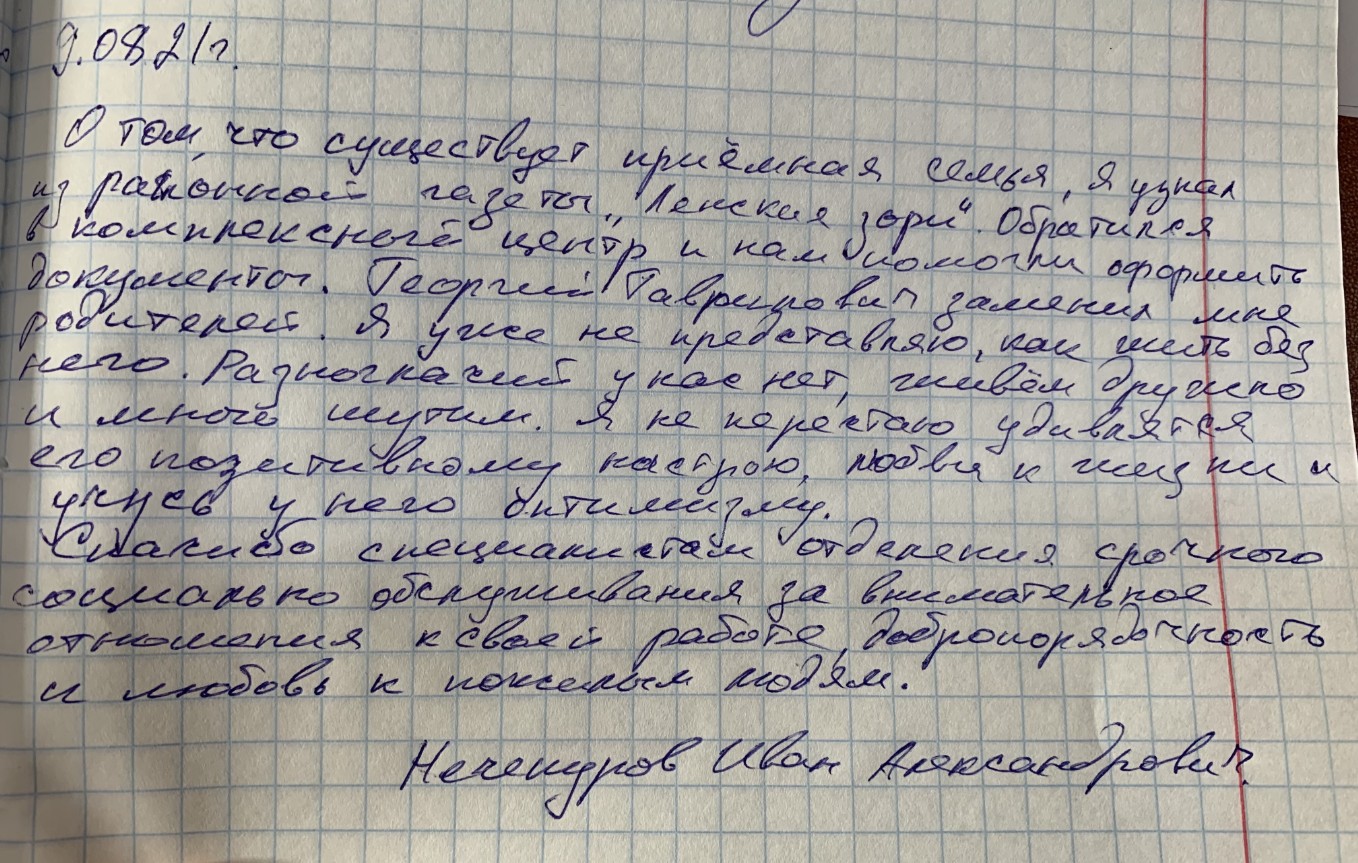 9.08.21г.
О том, что существует приёмная семья, я узнал
из районной газеты „Ленские зори“. Обратился
в комплексный центр и нам помогли оформить
документы. Георгий Гаврилович заменил мне
родителей. Я уже не представляю, как жить без
него. Разногласий у нас нет, живём дружно
и много шутим. Я не перестаю удивлятся
его позитивному настрою, любви к жизни и
учусь у него оптимизму.
Спасибо специалистам отделения срочного
социально обслуживания за внимательное
отношения к своей работе, добропорядочность
и любовь к пожилым людям.
Иван Александрович